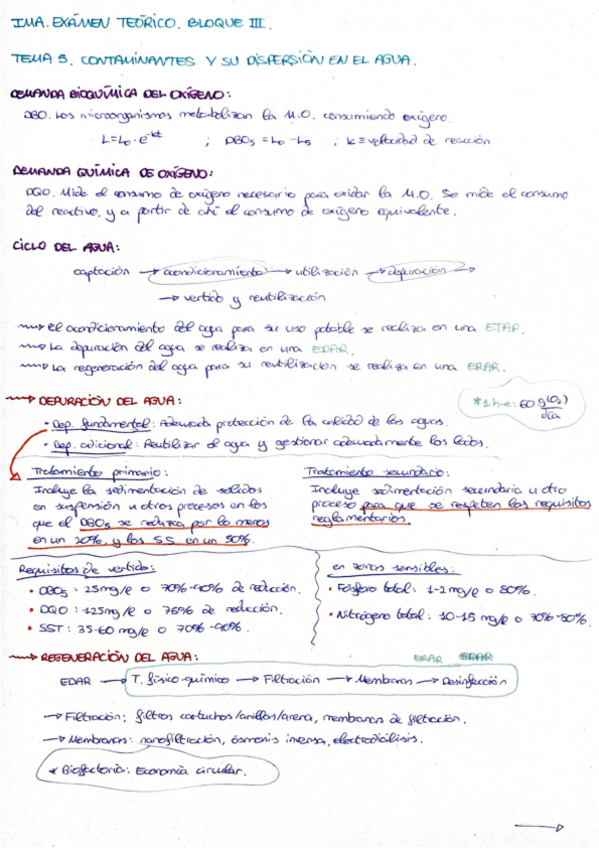 IMA. EXÁMEN TEÓRICO. BLOQUE III.
TEMA 5. CONTAMINANTES Y SU DISPERSIÓN EN EL AGUA.
DEMANDA BIOQUÍMICA DEL OXÍGENO:
DBO. Los microorganismos metabolizan la M.O. consumiendo oxígeno.
L=L₀·e^-kt ; DBO₅ = L₀ - L₅ ; k ≡ velocidad de reacción
DEMANDA QUÍMICA DE OXÍGENO:
DQO. Mide el consumo de oxígeno necesario para oxidar la M.O. Se mide el consumo
del reactivo, y a partir de ahí el consumo de oxígeno equivalente.
CICLO DEL AGUA:
captación → acondicionamiento → utilización → depuración →
→ vertido y reutilización
el acondicionamiento del agua para su uso potable se realiza en una ETAP.
La depuración del agua se realiza en una EDAR.
La regeneración del agua para su reutilización se realiza en una ERAR.
→ DEPURACIÓN DEL AGUA:
*1 h-e: 60 g(O₂)/día
• Dep. fundamental: Adecuada protección de la calidad de las aguas.
• Dep. adicional: Reutilizar el agua y gestionar adecuadamente los lodos.
Tratamiento primario:
Incluye la sedimentación de sólidos
en suspensión u otros procesos en los
que el DBO₅ se reduzca por lo menos
en un 20% y los SS en un 50%.
Tratamiento secundario:
Incluye sedimentación secundaria u otro
proceso para que se respeten los requisitos
reglamentarios.
Requisitos de vertido:
• DBO₅: 25mg/l o 70%-90% de reducción.
• DQO: 125mg/l o 75% de reducción.
• SST: 35-60 mg/l o 70%-90%.
en zonas sensibles:
• Fósforo total: 1-2 mg/l o 80%.
• Nitrógeno total: 10-15 mg/l o 70%-80%.
→ REGENERACIÓN DEL AGUA:
ERAR
EDAR → T. físico-químico → Filtración → Membranas → Desinfección
→ Filtración: filtros cartuchos/anillos/arena, membranas de filtración.
→ Membranas: nanofiltración, ósmosis inversa, electrodiálisis.
* Biofactoría: Economía circular.